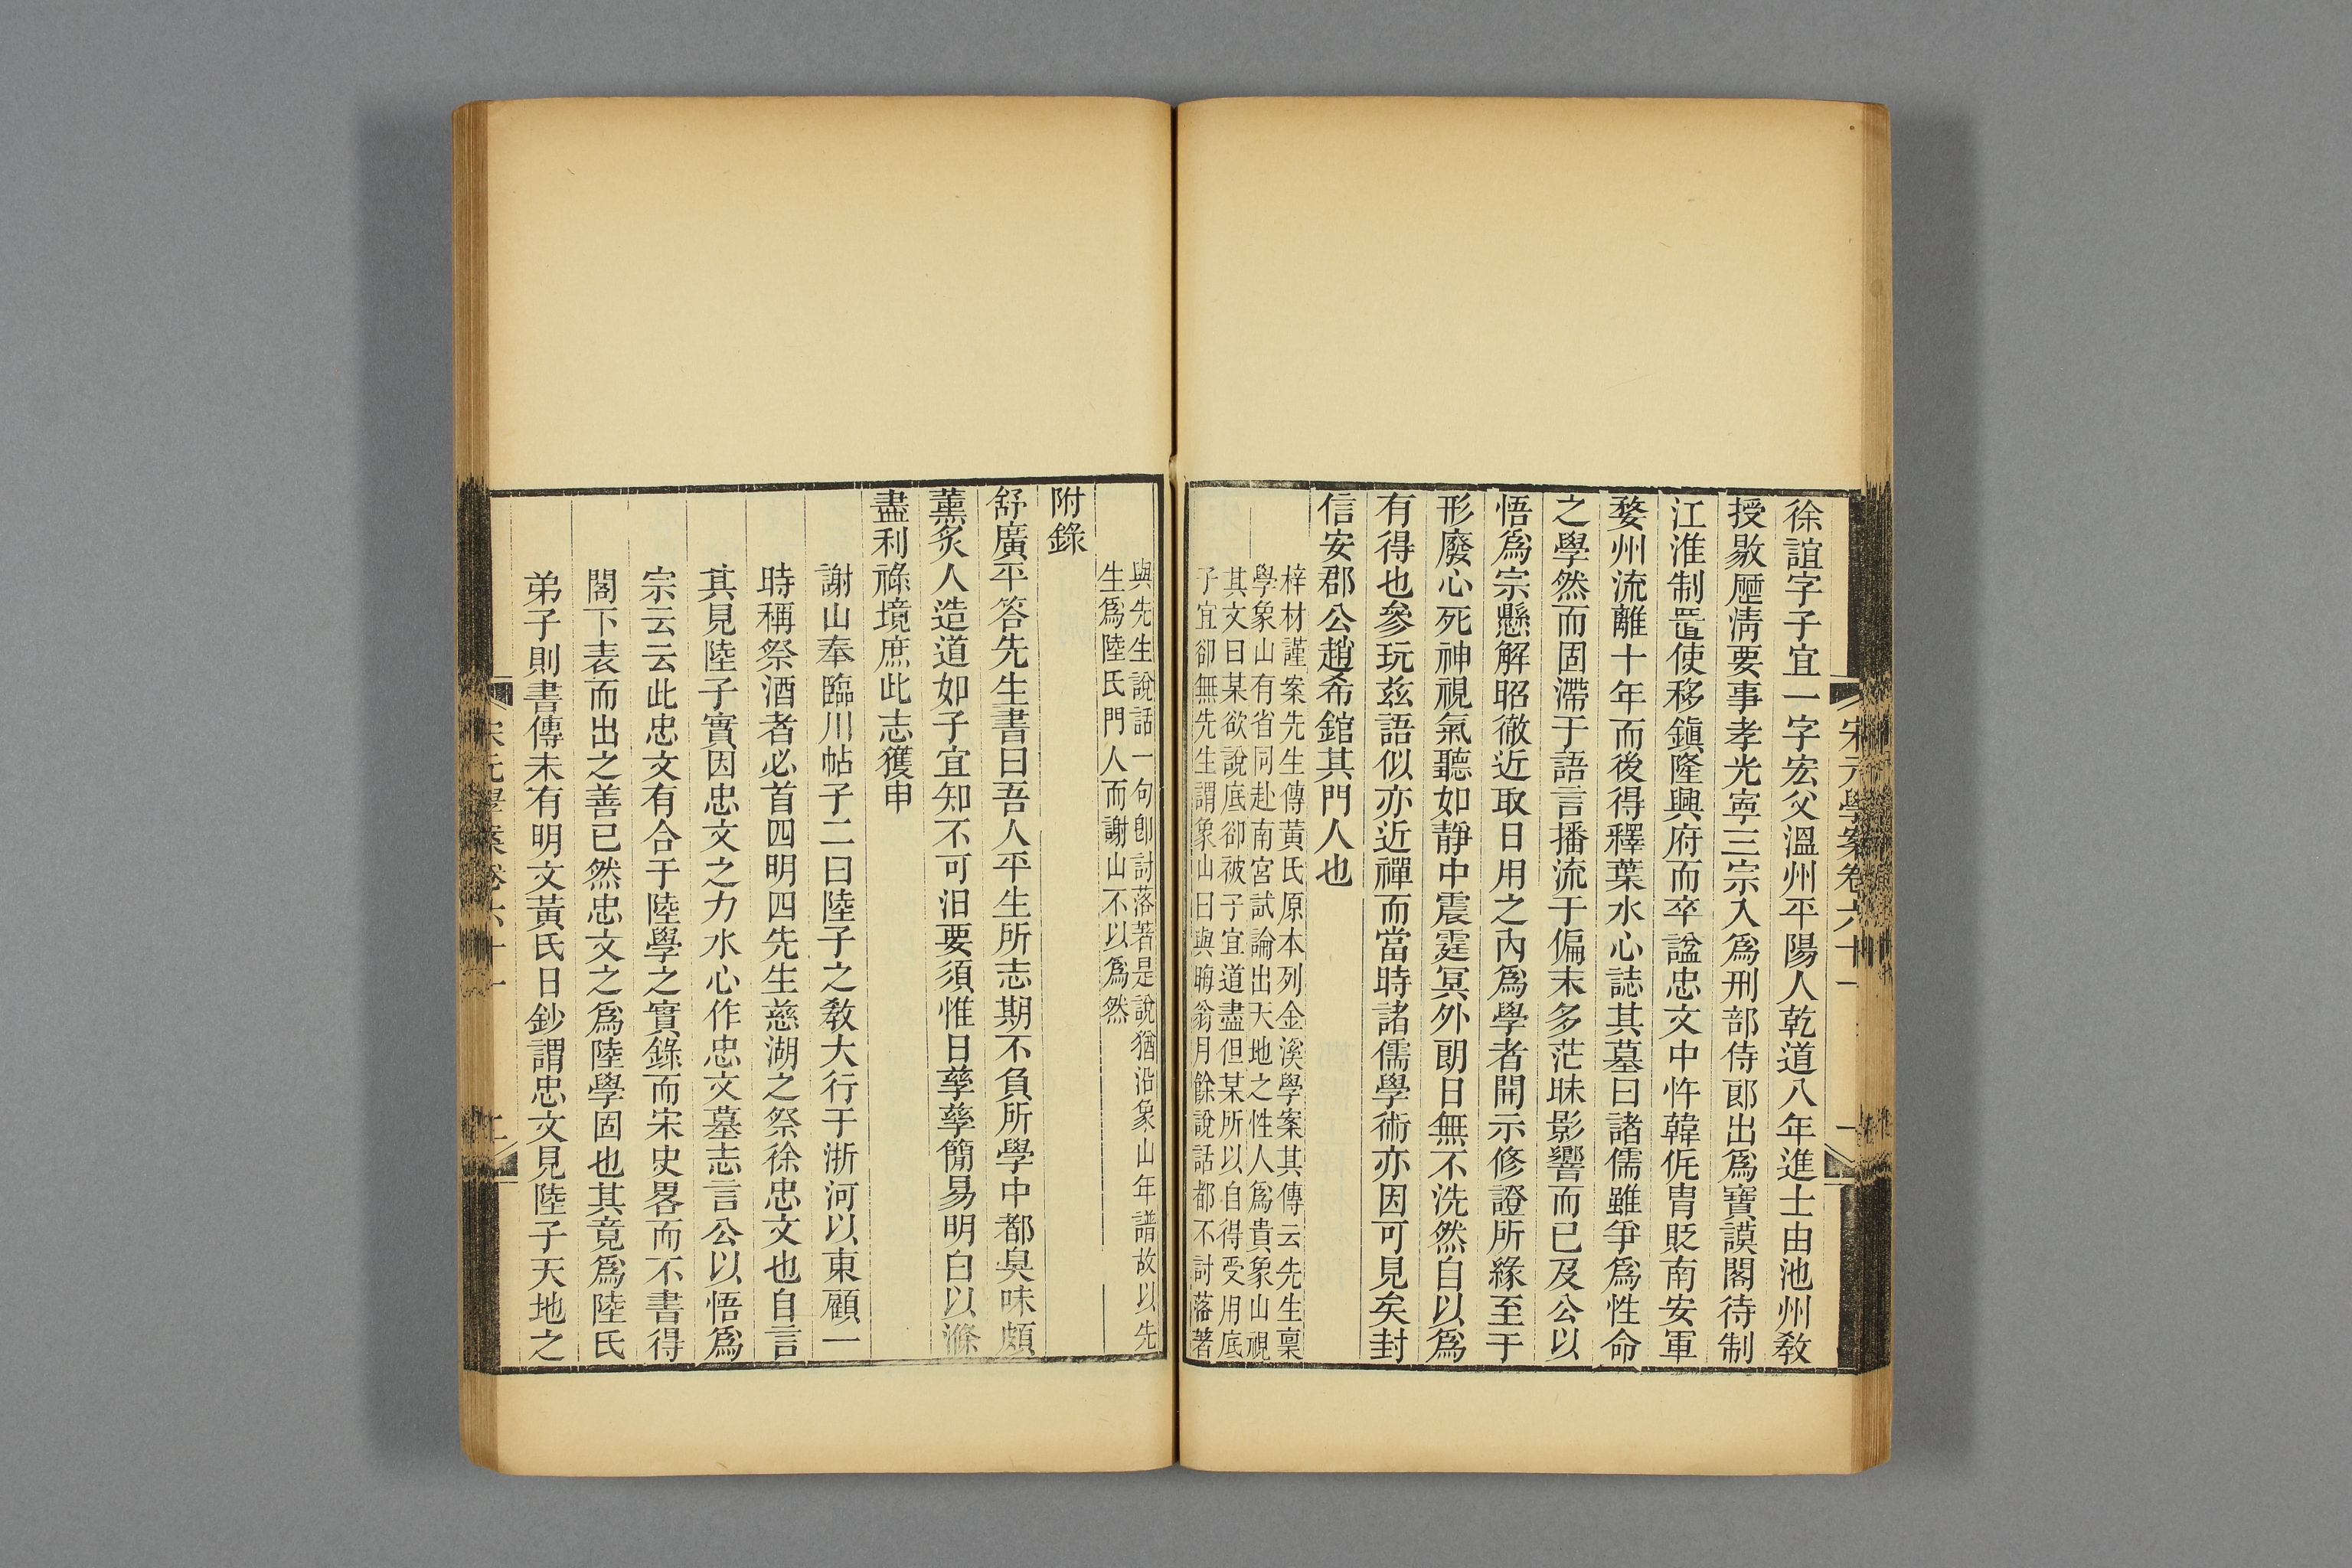 宋元學案卷六十一
徐誼字子宜一字宏父溫州平陽人乾道八年進士由池州敎
授敭歷淸要事孝光寧三宗入爲刑部侍郎出爲寶謨閣待制
江淮制置使移鎭隆興府而卒諡忠文中忤韓侂胄貶南安軍
婺州流離十年而後得釋葉水心誌其墓曰諸儒雖爭爲性命
之學然而固滯于語言播流于偏末多茫昧影響而已及公以
悟爲宗懸解昭徹近取日用之內爲學者開示修證所緣至于
形廢心死神視氣聽如靜中震霆冥外朗日無不洗然自以爲
有得也參玩茲語似亦近禪而當時諸儒學術亦因可見矣封
信安郡公趙希錧其門人也
梓材謹案先生傳黃氏原本列金溪學案其傳云先生稟
學象山有省同赴南宮試論出天地之性人爲貴象山視
其文曰某欲說底卻被子宜道盡但某所以自得受用底
子宜卻無先生謂象山曰與晦翁月餘說話都不討落著
與先生說話一句卽討落著是說猶沿象山年譜故以先
生爲陸氏門人而謝山不以爲然
附錄
舒廣平答先生書曰吾人平生所志期不負所學中都臭味頗
薰炙人造道如子宜知不可汨要須惟日孳孳簡易明白以滌
盡利祿境庶此志獲申
謝山奉臨川帖子二曰陸子之敎大行于浙河以東顧一
時稱祭酒者必首四明四先生慈湖之祭徐忠文也自言
其見陸子實因忠文之力水心作忠文墓志言公以悟爲
宗云云此忠文有合于陸學之實錄而宋史畧而不書得
閣下表而出之善已然忠文之爲陸學固也其竟爲陸氏
弟子則書傳未有明文黃氏日鈔謂忠文見陸子天地之
宋元學案卷六十一